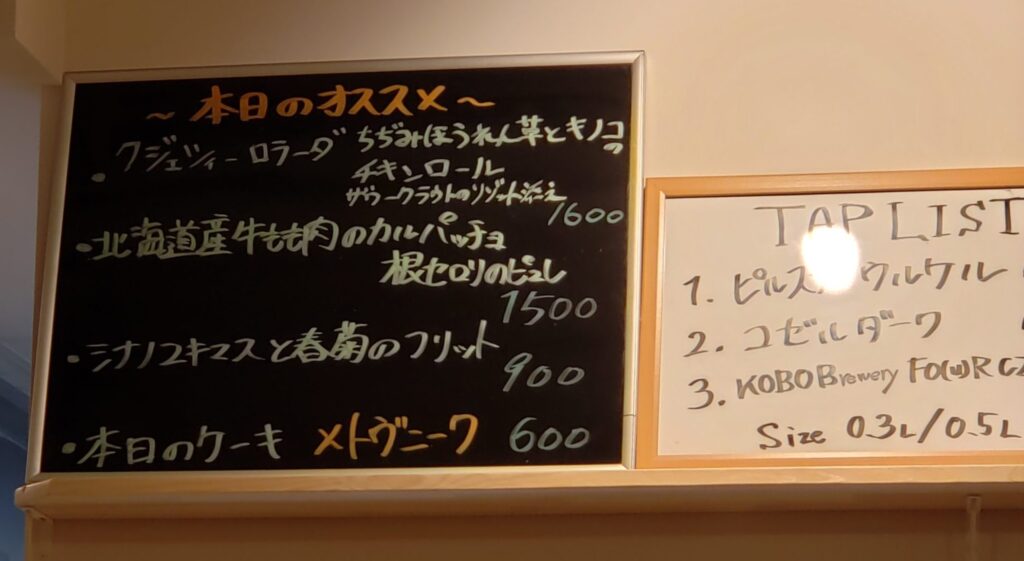 ～本日のオススメ～
・クジェツィーロラーダ ちぢみほうれん草とキノコの
チキンロール
ザワークラウトのリゾット添え
1600
・北海道産牛もも肉のカルパッチョ
根セロリのピュレ
1500
・シナノユキマスと春菊のフリット
900
・本日のケーキ メドヴニーク 600
TAP LIST
1. ピルスナーウルケル
2. コゼルダーク
3. KOBO Brewery FO(u)R CZ
Size 0.3L/0.5L